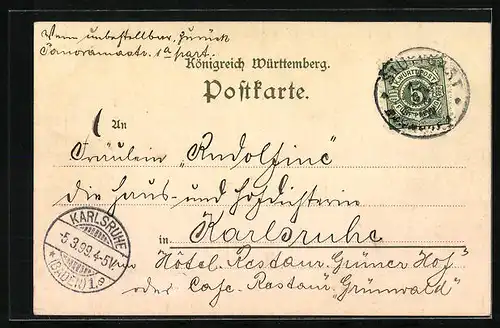 Wenn unbestellbar, zurück
Panoramastr. 1a part.
Königreich Württemberg.
Postkarte.
STUTTGART
K. WÜRTT. POST
5
An
Fräulein „Rudolfine"
die Haus- und Hofdichterin
in Karlsruhe
KARLSRUHE
5.3.99.4-5N.
*(BADEN)1.e
Hôtel-Restaur. „Grüner Hof"
oder Cafe-Restaur. „Grünwald"